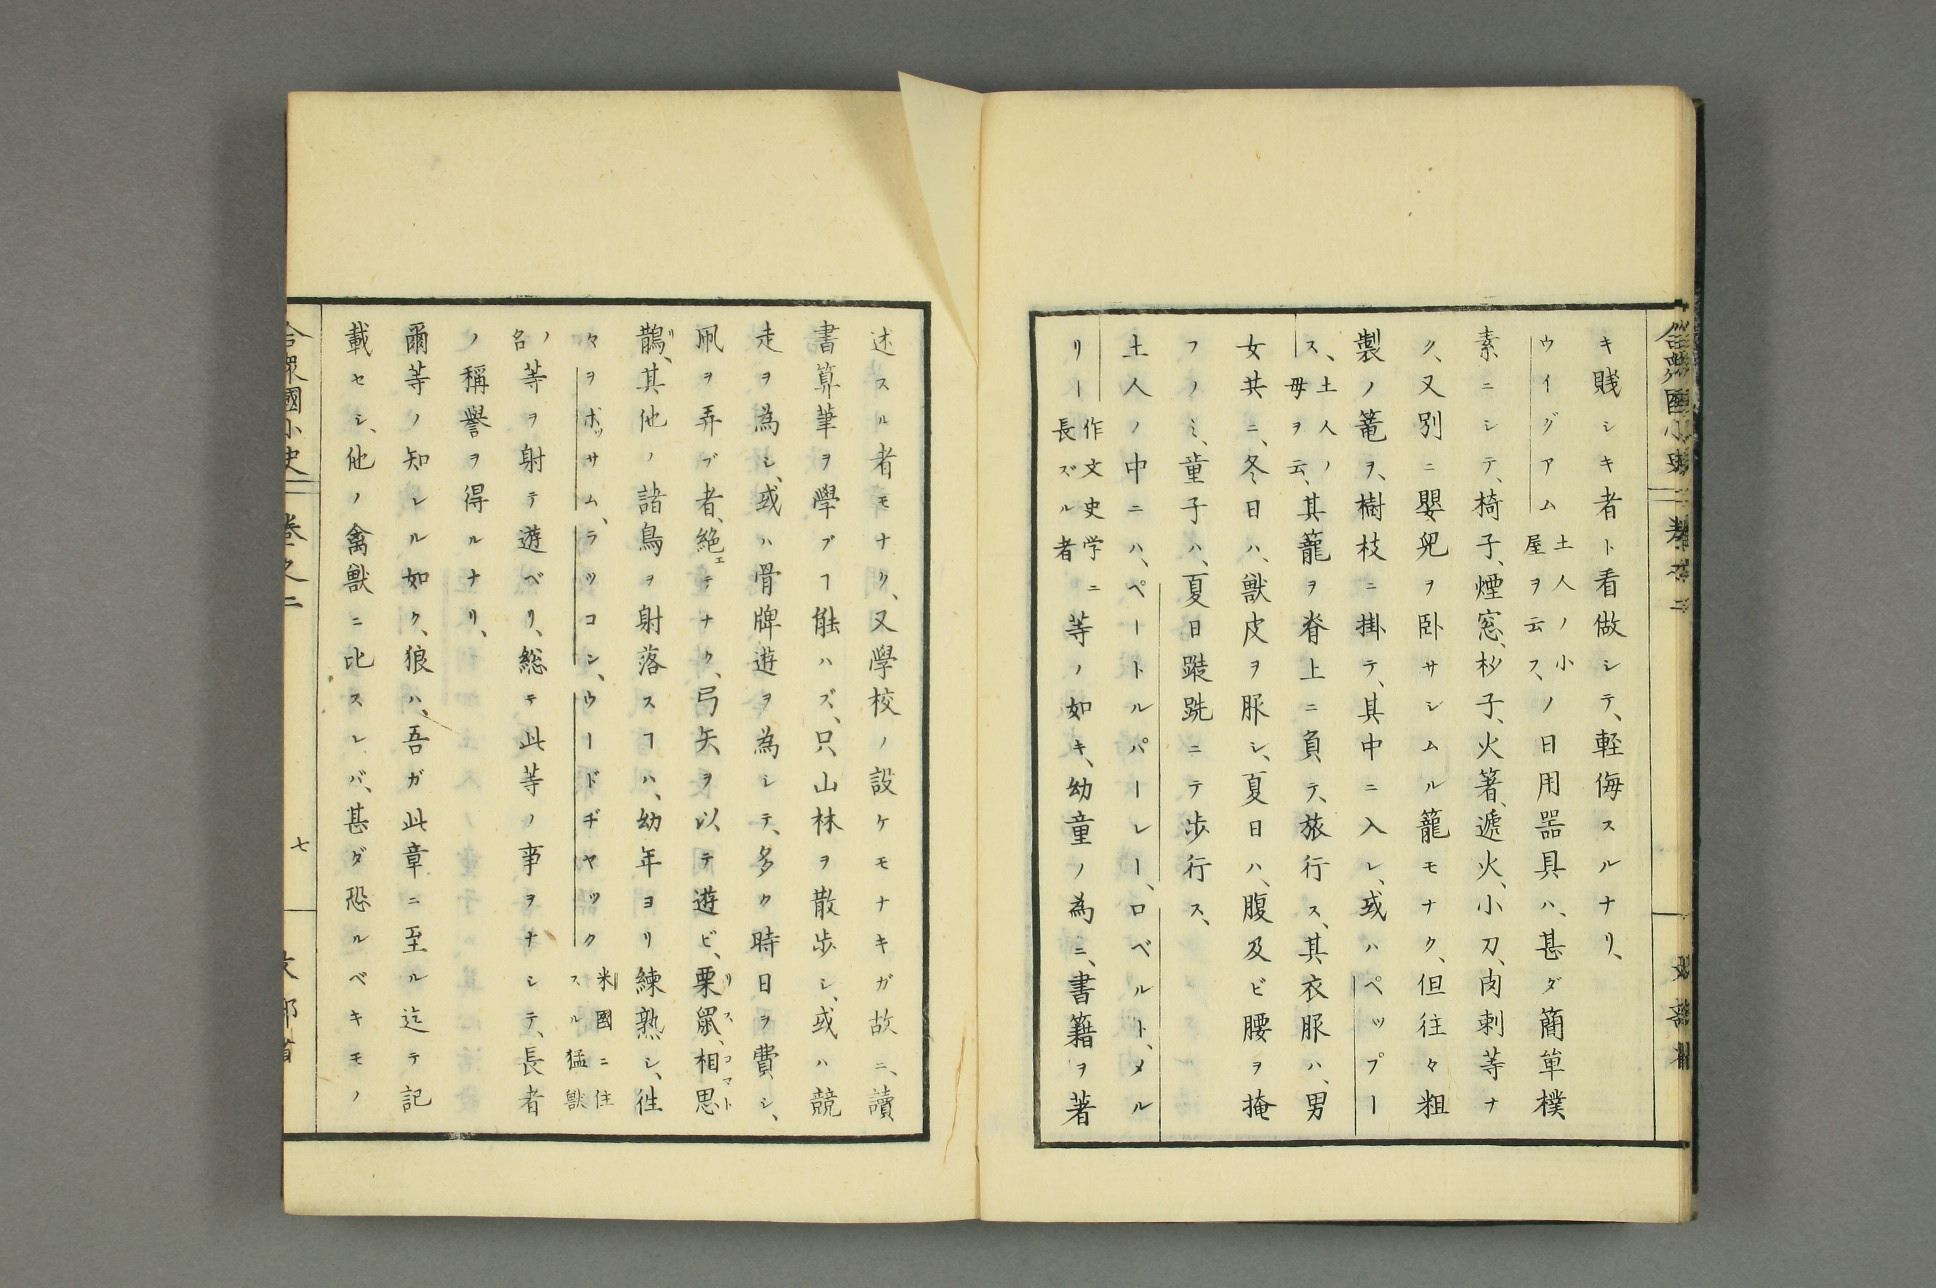 キ賤シキ者ト看做シテ、軽侮スルナリ、
ウイグアム土人ノ小屋ヲ云ス、ノ日用器具ハ、甚ダ簡単樸
素ニシテ、椅子、煙窓、杉子、火箸、遞火、小刀、肉刺等ナ
ク、又別ニ嬰児ヲ卧サシムル籠モナク、但往々粗
製ノ篭ヲ、樹枝ニ掛テ、其中ニ入レ、或ハペップー
ス、土人ノ母ヲ云、其籠ヲ脊上ニ負テ、旅行ス、其衣服ハ、男
女共ニ、冬日ハ、獣皮ヲ服シ、夏日ハ、腹及ビ腰ヲ掩
フノミ、童子ハ、夏日蹤跣ニテ歩行ス、
土人ノ中ニハ、ペートルパーレー、ロベルト、メル
リー作文史学ニ長ズル者等ノ如キ、幼童ノ為ニ、書籍ヲ著
述スル者モナク、又學校ノ設ケモナキガ故ニ、讀
書算筆ヲ學ブヿ能ハズ、只、山林ヲ散歩シ、或ハ競
走ヲ為シ、或ハ骨牌遊ヲ為シテ、多ク時日ヲ費シ、
凧ヲ弄ブ者、絶エテナク、弓矢ヲ以テ遊ビ、栗鼠、相思
鵲、其他ノ諸鳥ヲ射落スヿハ、幼年ヨリ練熟シ、徃
々ヲポッサム、ラツコン、ウードヂヤック米國ニ住スル猛獣
ノ名等ヲ射テ遊ベリ、総テ此等ノ事ヲナシテ、長者
ノ稱譽ヲ得ルナリ、
爾等ノ知レル如ク、狼ハ、吾ガ此章ニ至ル迄テ記
載セシ、他ノ禽獣ニ比スレバ、甚ダ恐ルベキモノ
合衆國小史 巻之二
七
文部省